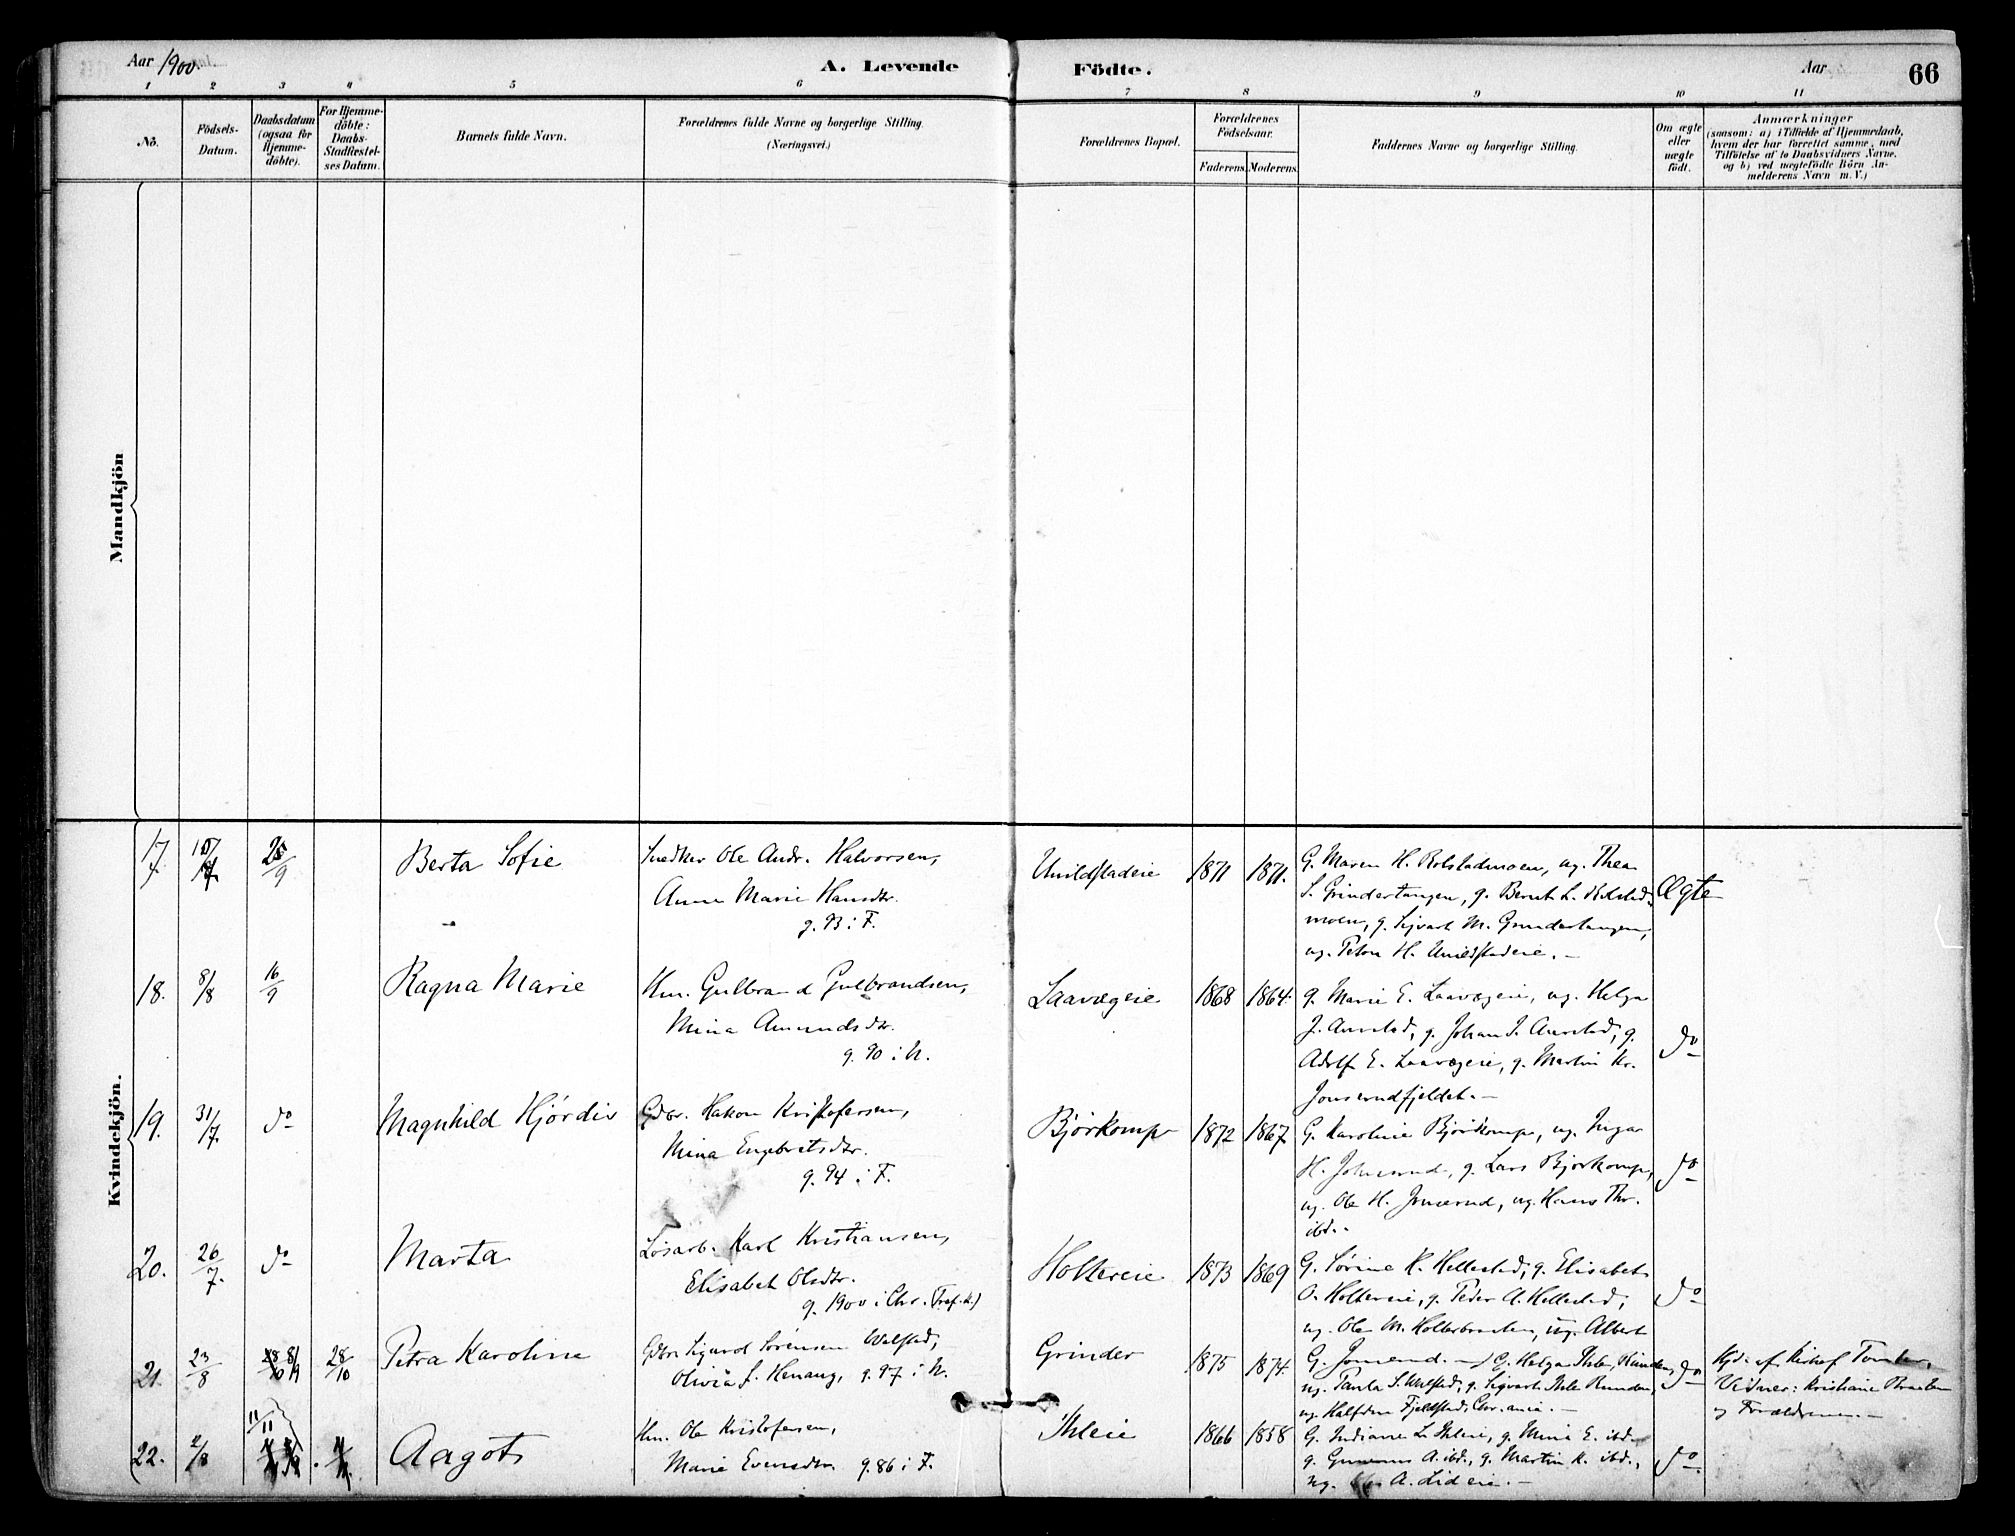 Aar 1900.
A. Levende Födte.
Aar
66
1 2 3 4 5 6 7 8 9 10 11
No.
Födsels-Datum.
Daabsdatum (ogsaa for Hjemme-döbte).
For Hjemme-döbte: Daabs-Stadfæstel-ses Datum.
Barnets fulde Navn.
Forældrenes fulde Navne og borgerlige Stilling.
(Næringsvei.)
Forældrenes Bopæl.
Forældrenes Födselsaar.
Faderens. Moderens.
Faddernes Navne og borgerlige Stilling.
Om ægte eller uægte födt.
Anmærkninger
(saasom: a) i Tilfælde af Hjemmedaab,
hvem der har forrettet samme, med
Tilföielse af to Daabsvidners Navne,
og b) ved uægtefödte Börn An-
melderens Navn m. V.)
Mandkjön
Kvindekjön.
17. Berta Sofie
Snedker Ole Andr. Halvorsen,
Anne Marie Hansdtr.
g. 93 i F.
1871 1871.
G. Maren H. Rolstadmoen, ug. Thea
S. Grindertangen, g. Bernt L. Rolstad-
moen, g. Sigvart M. Grindertangen,
Ægte
18. 8/8 16/9 Ragna Marie
Hm. Gulbrand Gulbrandsen,
Mina Amundsdtr.
g. 90 i N.
Laavegeie 1868 1864.
g. Marie E. Laavegeie, ug. Helga
J. Aurstad, g. Johan J. Aurstad, g.
Adolf E. Laavegeie, g. Martin Kr.
Jonsrudfjeldet.
do
19. 31/7. do Magnhild Hjórdis
Gdbr. Hakon Kristofersen,
Mina Engebretsdtr.
g. 94 i F.
Bjórkomp 1872 1867
G. Karoline Bjórkomp, ug. Inga
H. Jonsrud, g. Lars Bjórkomp,
ug. Ole H. Jonsrud, ug. Hans Thr.
ibd.
do
20. 26/7. do Marta
Lósarb. Karl Kristiansen,
Elisabet Olsdtr.
g. 1900 i Chr. (Tref. k.)
Holtereie 1873 1869
G. Sórine K. Hellestad, g. Elisabet
O. Holtereie, g. Peder A. Hellestad,
ug. Ole M. Holterbraaten, ug. Albert
G. Jonsrud.
do
21. 23/8 28/10 Petra Karoline
Gdbr. Sigurd Sórensen Wulstad,
Olivia J. Henaug, g. 97 i N.
Grinder 1875 1874.
G. Helga Ihle, Rúnden,
ug. Paula S. Wulstad, g. Sigvart Ihle Runden,
ug. Halfdan Fjeldstad, Chr.ania.
do
Hjd. af Kristof
Vidner: Kristiane Braaten
og Forældrene.
22. 2/8 11/11 Aagot
Hm. Ole Kristofersen,
Marie Evensdtr. g. 86 i F.
Ihleie 1866 1858
G. Indiane L. Ihleie, g. Mina E. ibd.
g. A. ibd., g. Martin K. ibd.,
ug. A. Lideie.
do.